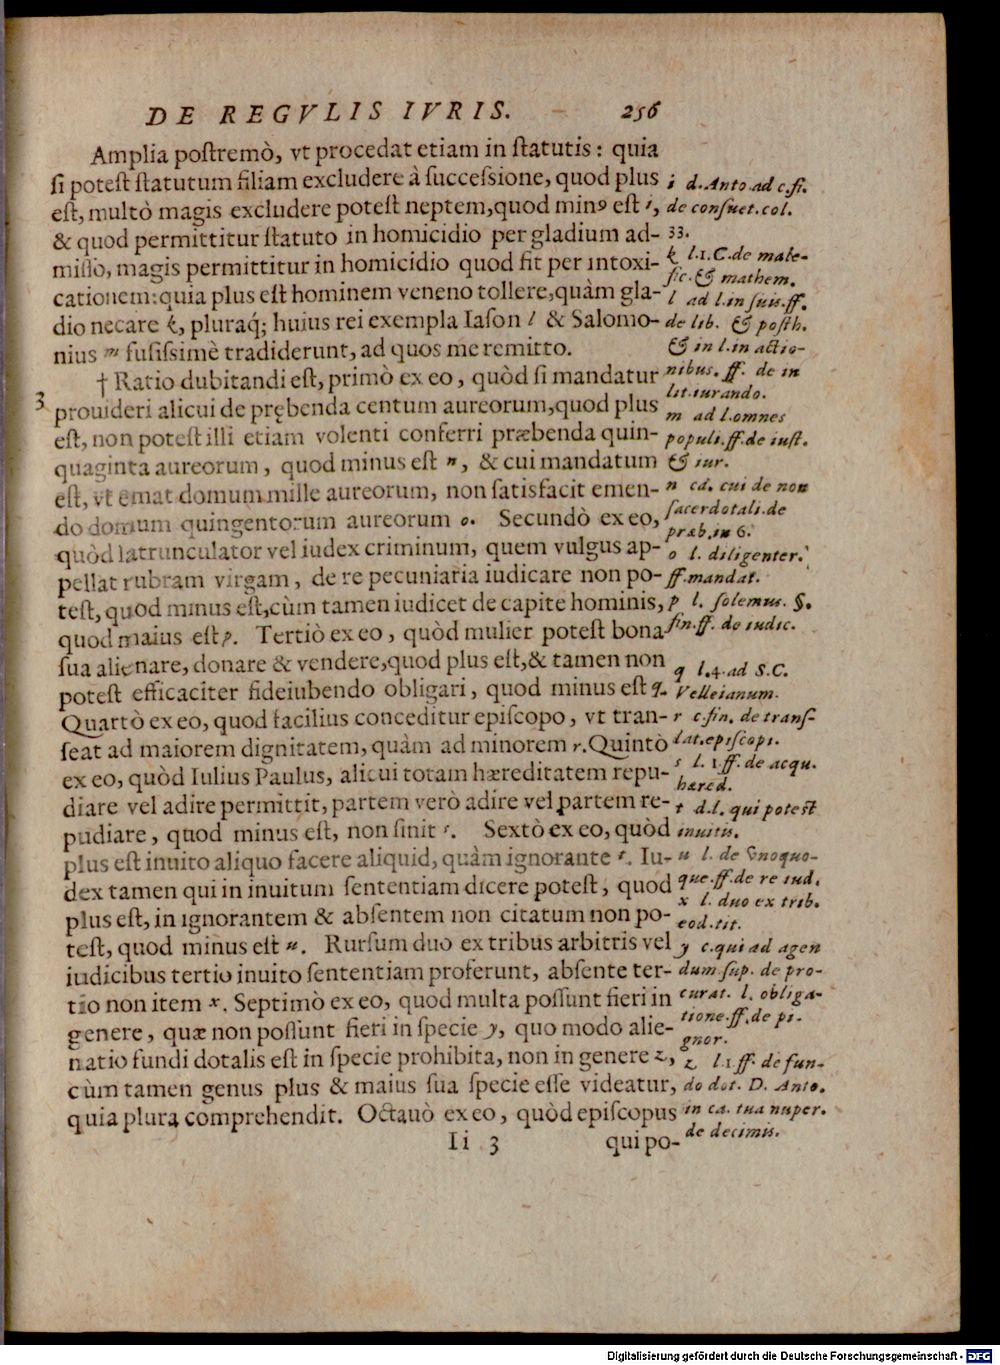 DE REGVLIS IVRIS. 256
Amplia postremò, vt procedat etiam in statutis: quia
si potest statutum filiam excludere à successione, quod plus
est, multò magis excludere potest neptem, quod minꝰ est i,
& quod permittitur statuto in homicidio per gladium ad-
misso, magis permittitur in homicidio quod fit per intoxi-
cationem: quia plus est hominem veneno tollere, quàm gla-
dio necare k, pluraq́; huius rei exempla Iason l & Salomo-
nius m fusissimè tradiderunt, ad quos me remitto.
† Ratio dubitandi est, primò ex eo, quòd si mandatur
3
prouideri alicui de prębenda centum aureorum, quod plus
est, non potest illi etiam volenti conferri præbenda quin-
quaginta aureorum, quod minus est n, & cui mandatum
est, vt emat domum mille aureorum, non satisfacit emen-
do domum quingentorum aureorum o. Secundò ex eo,
quòd latrunculator vel iudex criminum, quem vulgus ap-
pellat rubram virgam, de re pecuniaria iudicare non po-
test, quod minus est, cùm tamen iudicet de capite hominis,
quod maius est p. Tertiò ex eo, quòd mulier potest bona
sua alienare, donare & vendere, quod plus est, & tamen non
potest efficaciter fideiubendo obligari, quod minus est q.
Quartò ex eo, quod facilius conceditur episcopo, vt tran-
seat ad maiorem dignitatem, quàm ad minorem r. Quintò
ex eo, quòd Iulius Paulus, alicui totam hæreditatem repu-
diare vel adire permittit, partem verò adire vel partem re-
pudiare, quod minus est, non sinit s. Sextò ex eo, quòd
plus est inuito aliquo facere aliquid, quàm ignorante t. Iu-
dex tamen qui in inuitum sententiam dicere potest, quod
plus est, in ignorantem & absentem non citatum non po-
test, quod minus est u. Rursum duo ex tribus arbitris vel
iudicibus tertio inuito sententiam proferunt, absente ter-
tio non item x. Septimò ex eo, quod multa possunt fieri in
genere, quæ non possunt fieri in specie y, quo modo alie-
natio fundi dotalis est in specie prohibita, non in genere z,
cùm tamen genus plus & maius sua specie esse videatur,
quia plura comprehendit. Octauò ex eo, quòd episcopus
Ii 3 qui po-
i d. Anto. ad c. fi.
de consuet. col.
33.
k l. 1. C. de male-
fic. & mathem.
l ad l. in suis. ff.
de lib. & posth.
& in l. in actio-
nibus. ff. de in
lit. iurando.
m ad l. omnes
populi. ff. de iust.
& iur.
n ca. cui de non
sacerdotali. de
præb. in 6.
o l. diligenter.
ff. mandat.
p l. solemus. §.
fin. ff. de iudic.
q l. 4. ad S. C.
Velleianum.
r c. fin. de transl-
lat. episcopi.
s l. 1. ff. de acqu.
hæred.
t d. l. qui potest
inuitis.
u l. de vnoquo-
que. ff. de re iud.
x l. duo ex trib.
eod. tit.
y c. qui ad agen
dum. sup. de pro-
curat. l. obliga-
tione. ff. de pi-
gnor.
z l. 1 ff. de fun-
do dot. D. Anto.
in ca. tua nuper.
de decimis.
Digitalisierung gefördert durch die Deutsche Forschungsgemeinschaft - DFG